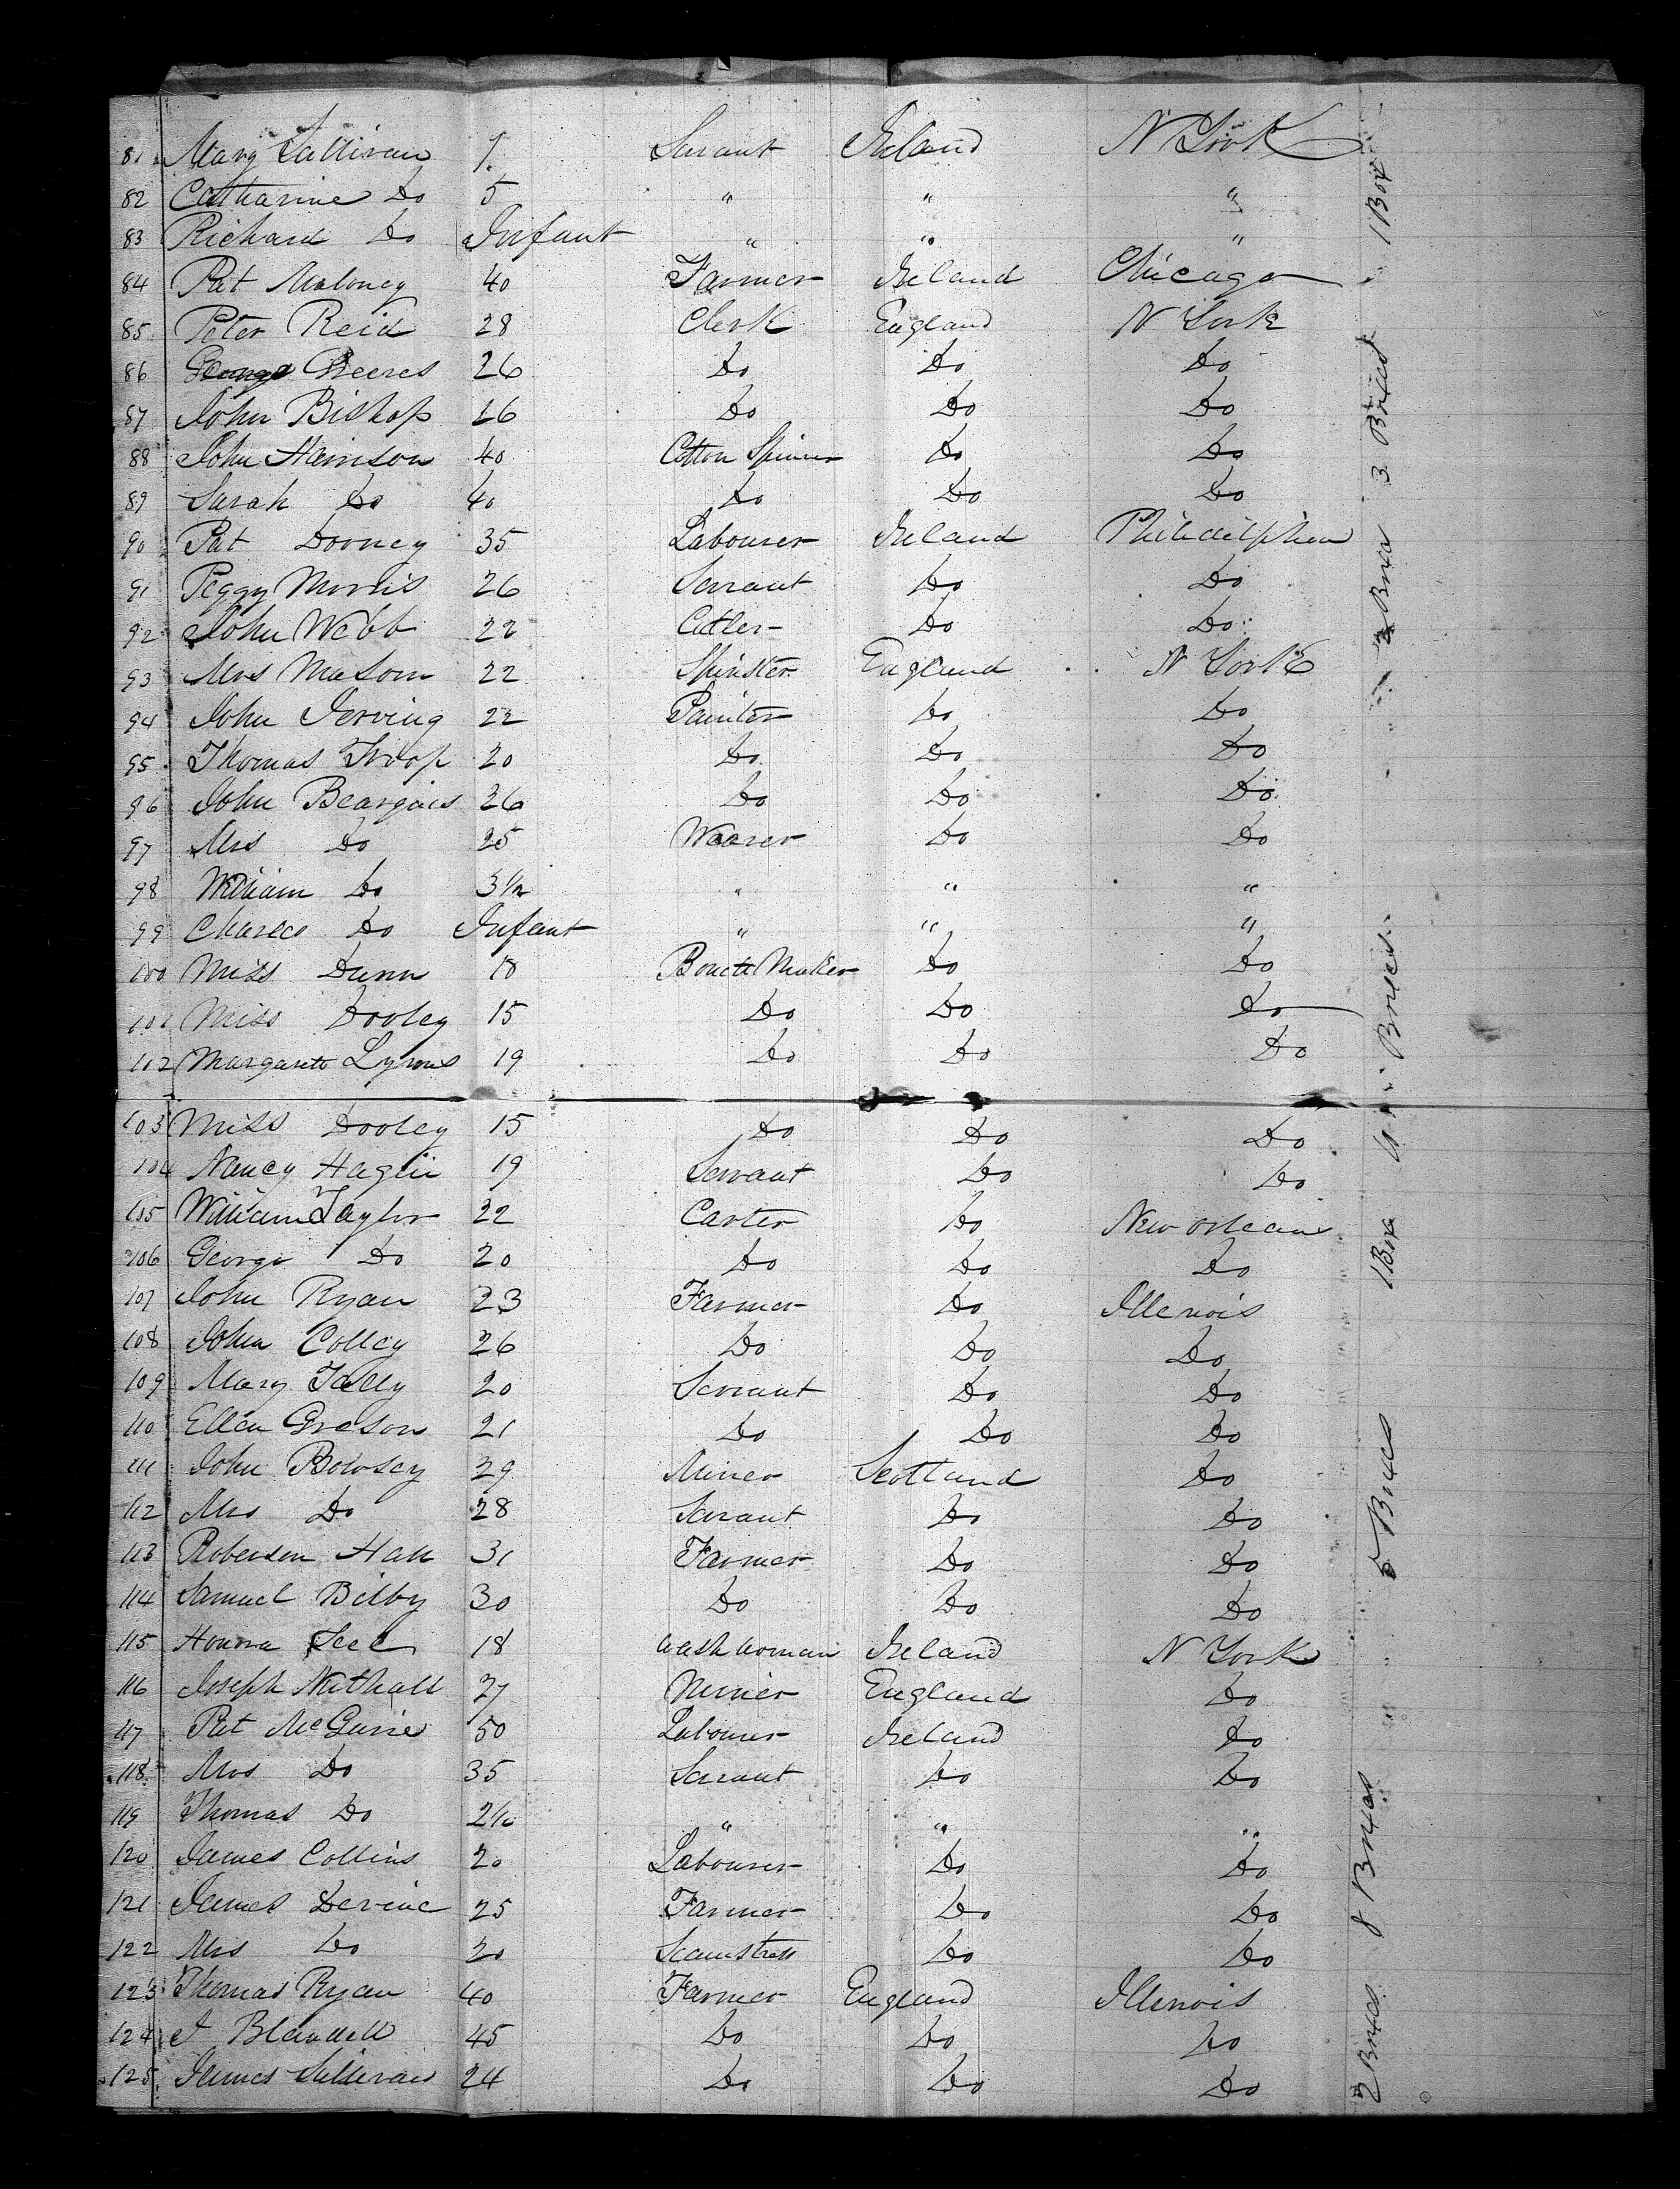 81 Mary Sullivan 7 Sarvant Ireland N York
82 Catharine Do 5 " " "
83 Richard Do Infant " " "
84 Pat Maloney 40 Farmer Ireland Chicago
85 Peter Reid 28 Clerk England N York
86 George 26 Do Do Do
87 John Bishop 26 Do Do Do
88 John Harrison 40 Cotton Spinner Do Do
89 Sarah Do 40 Do Do Do
90 Pat Dooney 35 Labourer Ireland Philidelphia
91 Peggy Morris 26 Servant Do Do
92 John Webb 22 Do Do
93 Mrs Masom 22 Spinster England N York
94 John Jerving 22 Painter Do Do
95 Thomas Troop 20 Do Do Do
96 John 26 Do Do Do
97 Mrs Do 25 Weaver Do Do
98 William Do 3½ " " "
99 Charles Do Infant " " "
100 Miss Dunn 18 Maker Do Do
101 Miss Dooley 15 Do Do Do
102 Margarett Lyons 19 Do Do Do
103 Miss Dooley 15 Do Do Do
104 Nancy 19 Servant Do Do
105 William Taylor 22 Carter Do New Orleans
106 George Do 20 Do Do Do
107 John Ryan 23 Farmer Do Illenois
108 John Colley 26 Do Do Do
109 Mary 20 Servant Do Do
110 Ellen Greson 21 Do Do Do
111 John Bowsey 29 Miner Scotland Do
112 Mrs Do 28 Sarvant Do Do
113 Roberson Hall 31 Farmer Do Do
114 Samuel Bilby 30 Do Do Do
115 Honora 18 Wash Woman Ireland N York
116 Joseph Nuthall 27 Miner England Do
117 Pat McGuire 50 Labourer Ireland Do
118 Mrs Do 35 Sarvant Do Do
119 Thomas Do " " "
120 James Collins 20 Labourer Do Do
121 James Devine 25 Farmer Do Do
122 Mrs Do 20 Seamstress Do Do
123 Thomas Ryan 40 Farmer England Illenois
124 J Blandell 45 Do Do Do
125 James Sullivan 24 Do Do Do
2 Boxes 8 Boxes 5 Boxes 1 Box Boxes 2 Boxes 3 Boxes 1 Box